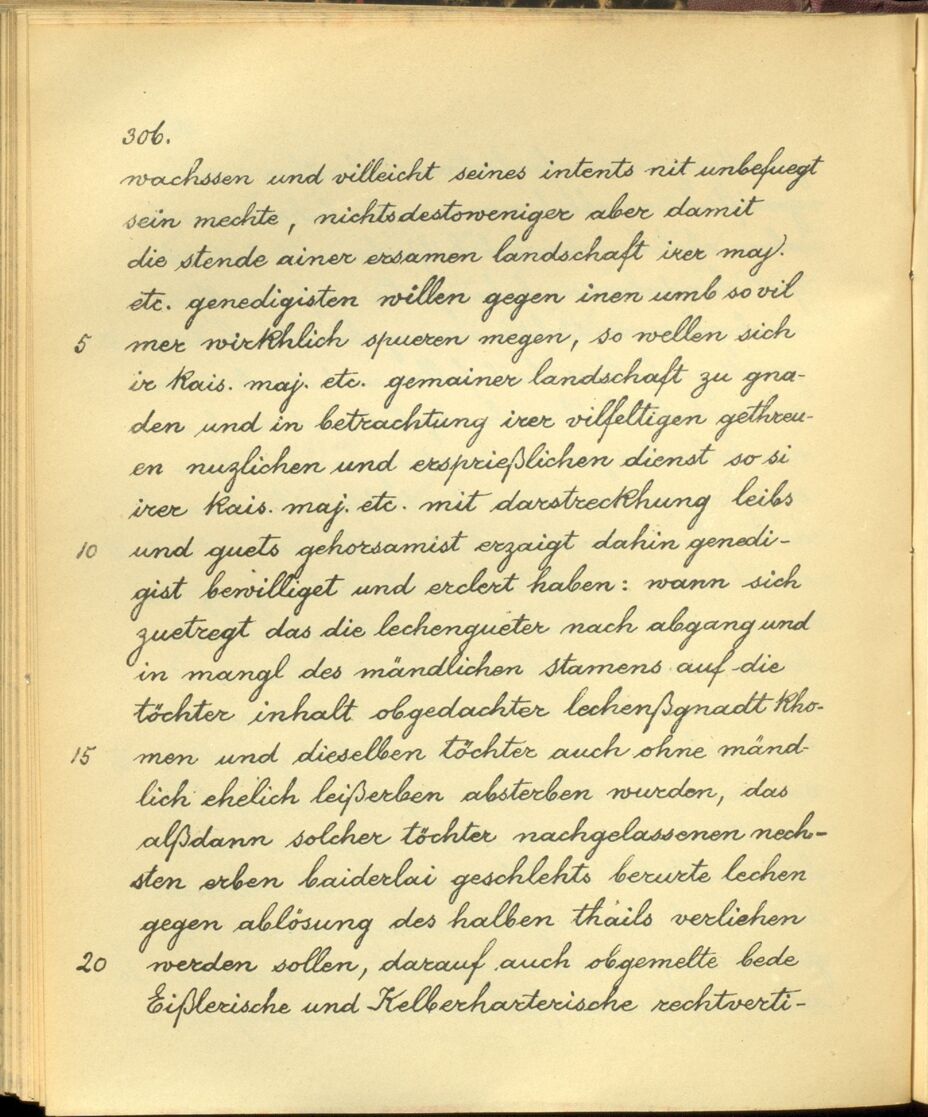 306.
wachssen und villeicht seines intents nit unbefuegt
sein mechte, nichtsdestoweniger aber damit
die stende ainer ersamen landschaft irer maj.
etc. genedigisten willen gegen inen umb sovil
5 mer wirkhlich spueren megen, so wellen sich
ir kais. maj. etc. gemainer landschaft zu gna-
den und in betrachtung irer vilfeltigen gethreu-
en nuzlichen und ersprießlichen dienst so si
irer kais. maj. etc. mit darstreckhung leibs
10 und guets gehorsamist erzaigt dahin genedi-
gist bewilliget und erclert haben: wann sich
zuetregt das die lechengueter nach abgang und
in mangl des mändlichen stamens auf die
töchter inhalt obgedachter lechenßgnadt kho-
15 men und dieselben töchter auch ohne mänd-
lich ehelich leißerben absterben wurden, das
alßdann solcher töchter nachgelassenen nech-
sten erben baiderlai geschlehts berurte lechen
gegen ablösung des halben thails verliehen
20 werden sollen, darauf auch obgemelte bede
Eißlerische und Kelberharterische rechtverti-